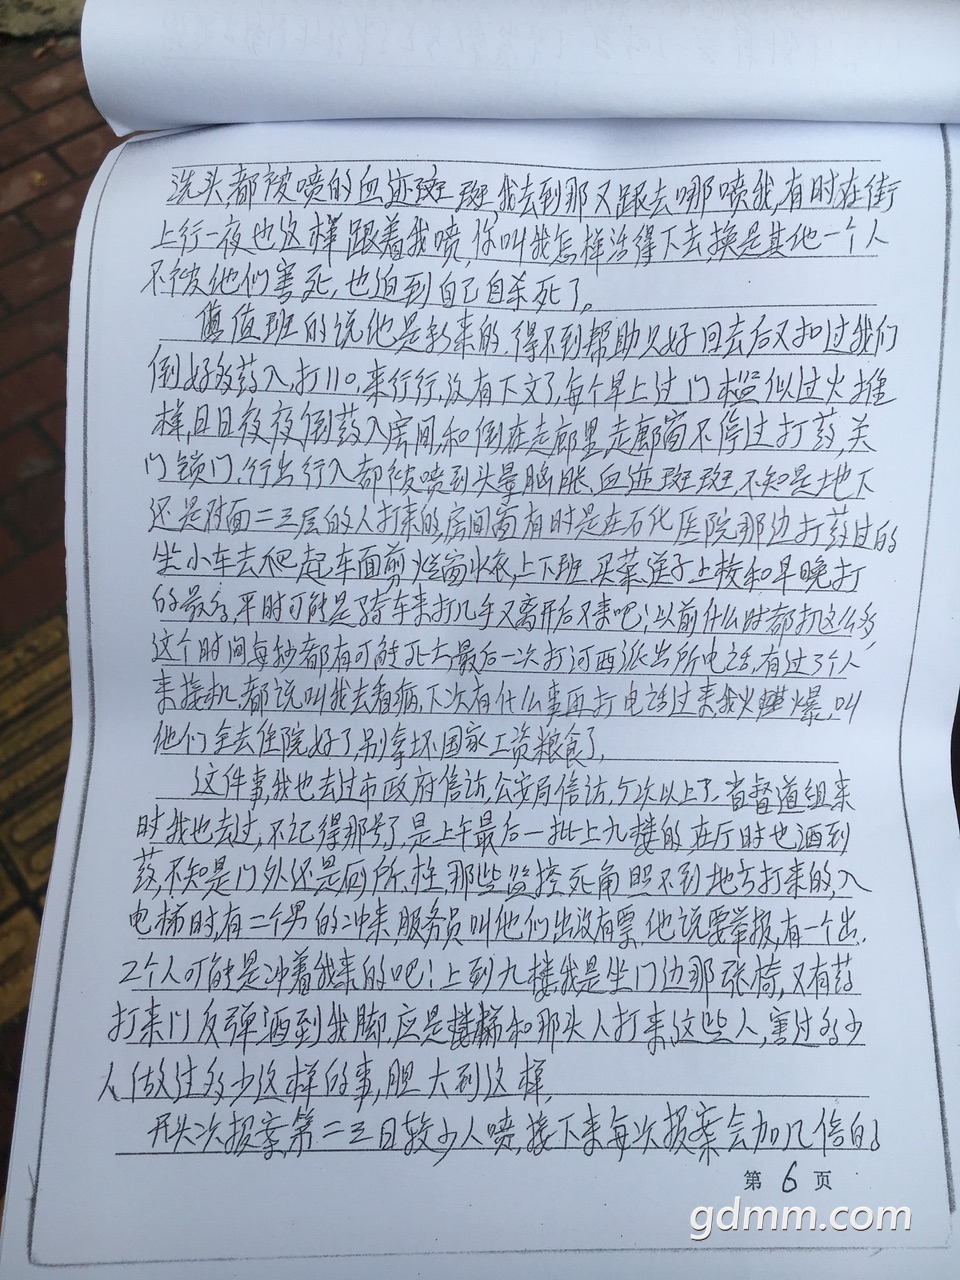 洗头都被喷的血迹斑斑,我去到那又跟去哪喷我,有时在街
上行一夜也这样跟着我喷,你叫我怎样活得下去,换是其他一个人
不被他们害死,也迫到自己自杀死了。
值班的说他是新来的,得不到帮助只好回去后又扣过我们
倒好多药入,打110,来行行,没有下文了,每个早上过门槛似过火堆
样,日日夜夜倒药入房间,和倒在走廊里,走廊窗不停过打药,关
门锁门,行出行入都被喷到头晕脑胀,血迹斑斑,不知是地下
还是对面二三层的人打来的,房间窗有时是在石化医院那边打药过的
坐小车去爬起车面剪烂窗纱夜,上下班,买菜,送子上校和早晚打
的最多,平时可能是骑车来打几手又离开后又来吧!以前什么时都打这么多,
这个时间每秒都有可能死亡,最后一次打河西派出所电话,有过3个人
来接机,都说叫我去看病,下次有什么事再打电话过来,我火爆爆,叫
他们全去住院好了,别拿坏国家工资粮食了,
这件事,我也去过市政府信访,公安局信访,5次以上了,省督道组来
时我也去过,不记得那号了,是上午最后一批上九楼的,在厅时也洒到
药,不知是门外还是厕所、柱,那些监控死角照不到地方打来的,入
电梯时,有二个男的冲来,服务员叫他们出没有票,他说要举报,有一个出,
2个人可能是冲着我来的吧!上到九楼我是坐门边那张椅,又有药
打来门反弹洒到我脚,应是楼梯和那头人打来,这些人,害过多少
人,做过多少这样的事,胆大到这样,
开头次报案,第二三日较少人喷,接下来每次报案会加几倍的
第 6 页
gdmm.com